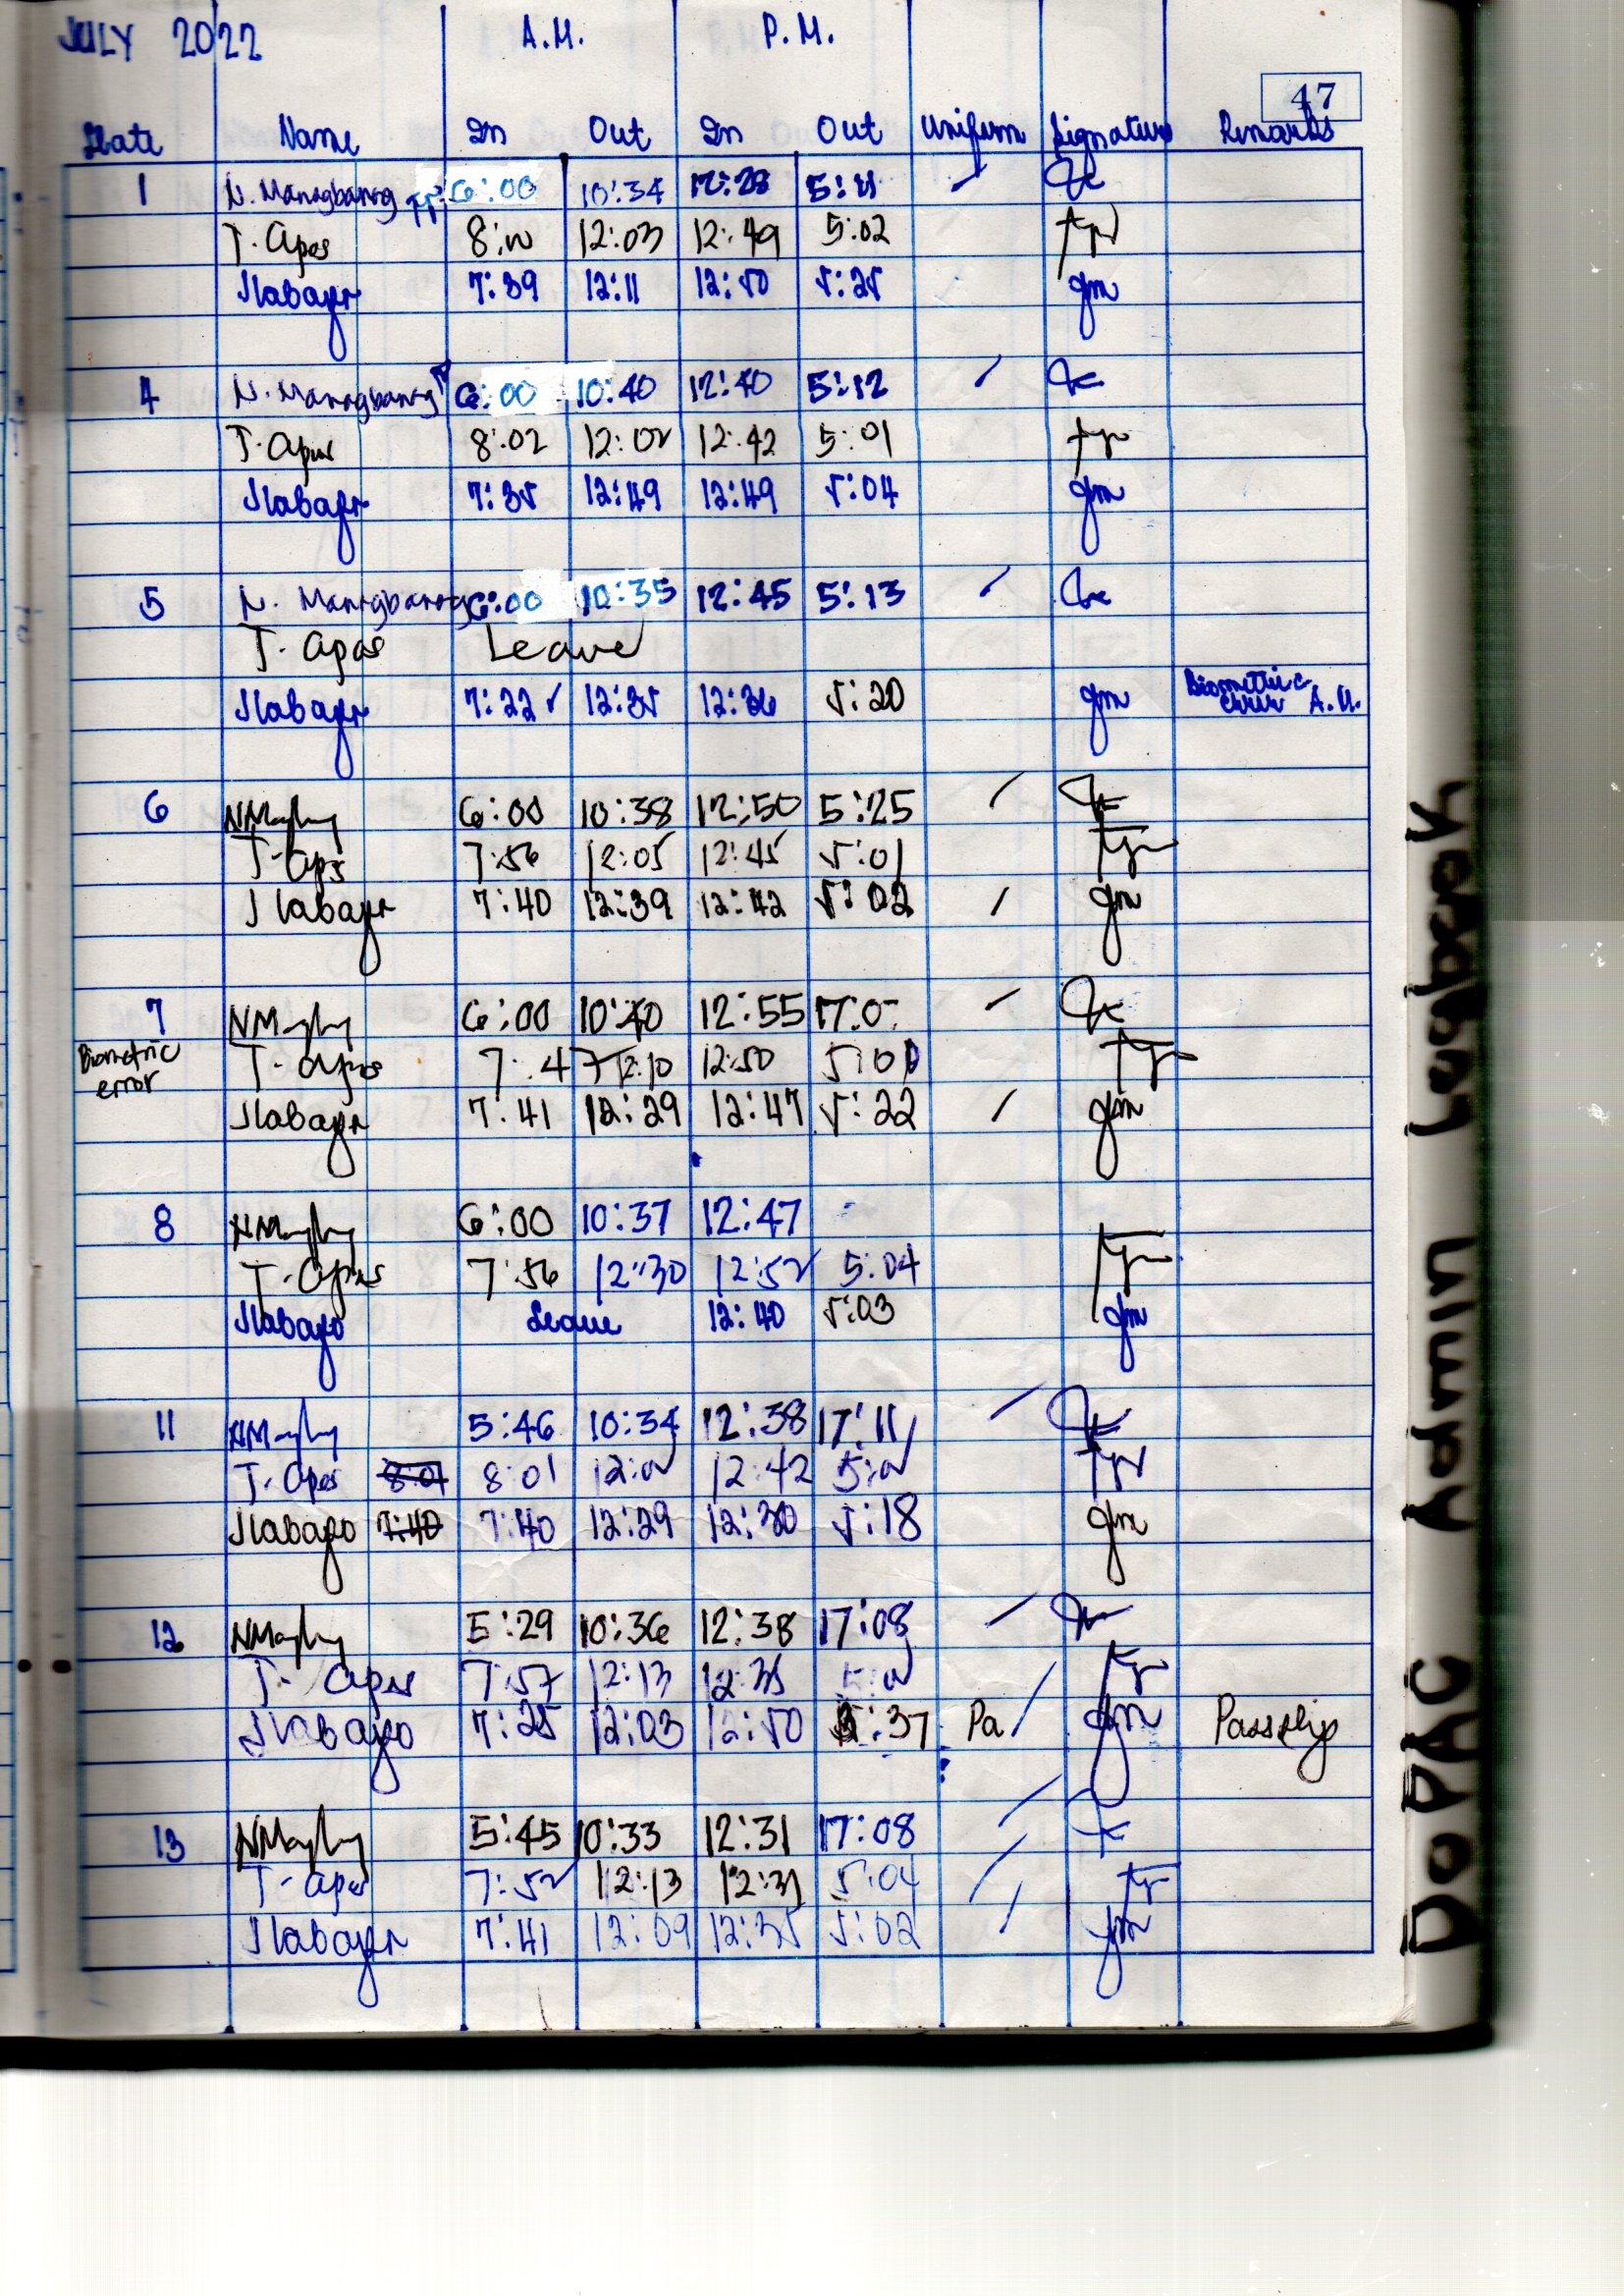 JULY 2022 A.M. P.M.
47
Date Name In Out In Out Uniform Signature Remarks
1 N. Managbanag 6:00 10:34 12:28 5:11
T. Apas 8:00 12:03 12:49 5:02
Jlabajo 7:39 12:11 12:50 5:25
4 N. Managbanag 6:00 10:40 12:40 5:12
T. Apas 8:02 12:02 12:42 5:01
Jlabajo 7:35 12:49 12:49 5:04
5 N. Managbanag 6:00 10:35 12:45 5:13
T. Apas Leave
Jlabajo 7:22 12:35 12:36 5:20 Biometric error A.M.
6 6:00 10:38 12:50 5:25
T. Apas 7:56 12:05 12:45 5:01
Jlabajo 7:40 12:39 12:42 5:02
7 6:00 10:40 12:55
Biometric error T. Apas 7:47 12:10 12:50
Jlabajo 7:41 12:29 12:47 5:22
8 6:00 10:37 12:47
T. Apas 7:56 12:30 12:52 5:04
Jlabajo Leave 12:40 5:03
11 5:46 10:34 12:38 17:11
T. Apas 8:01 8:01 12:42
Jlabajo 7:40 7:40 12:29 12:30 5:18
12 5:29 10:36 12:38 17:08
T. Apas 7:57 12:13 12:35
Jlabajo 7:25 12:03 12:50 :37 Pa Passslip
13 5:45 10:33 12:31 17:08
T. Apas 7:52 12:13 12:31 5:04
Jlabajo 7:41 12:09 12:35 5:02
DOPAC Admin Logbook